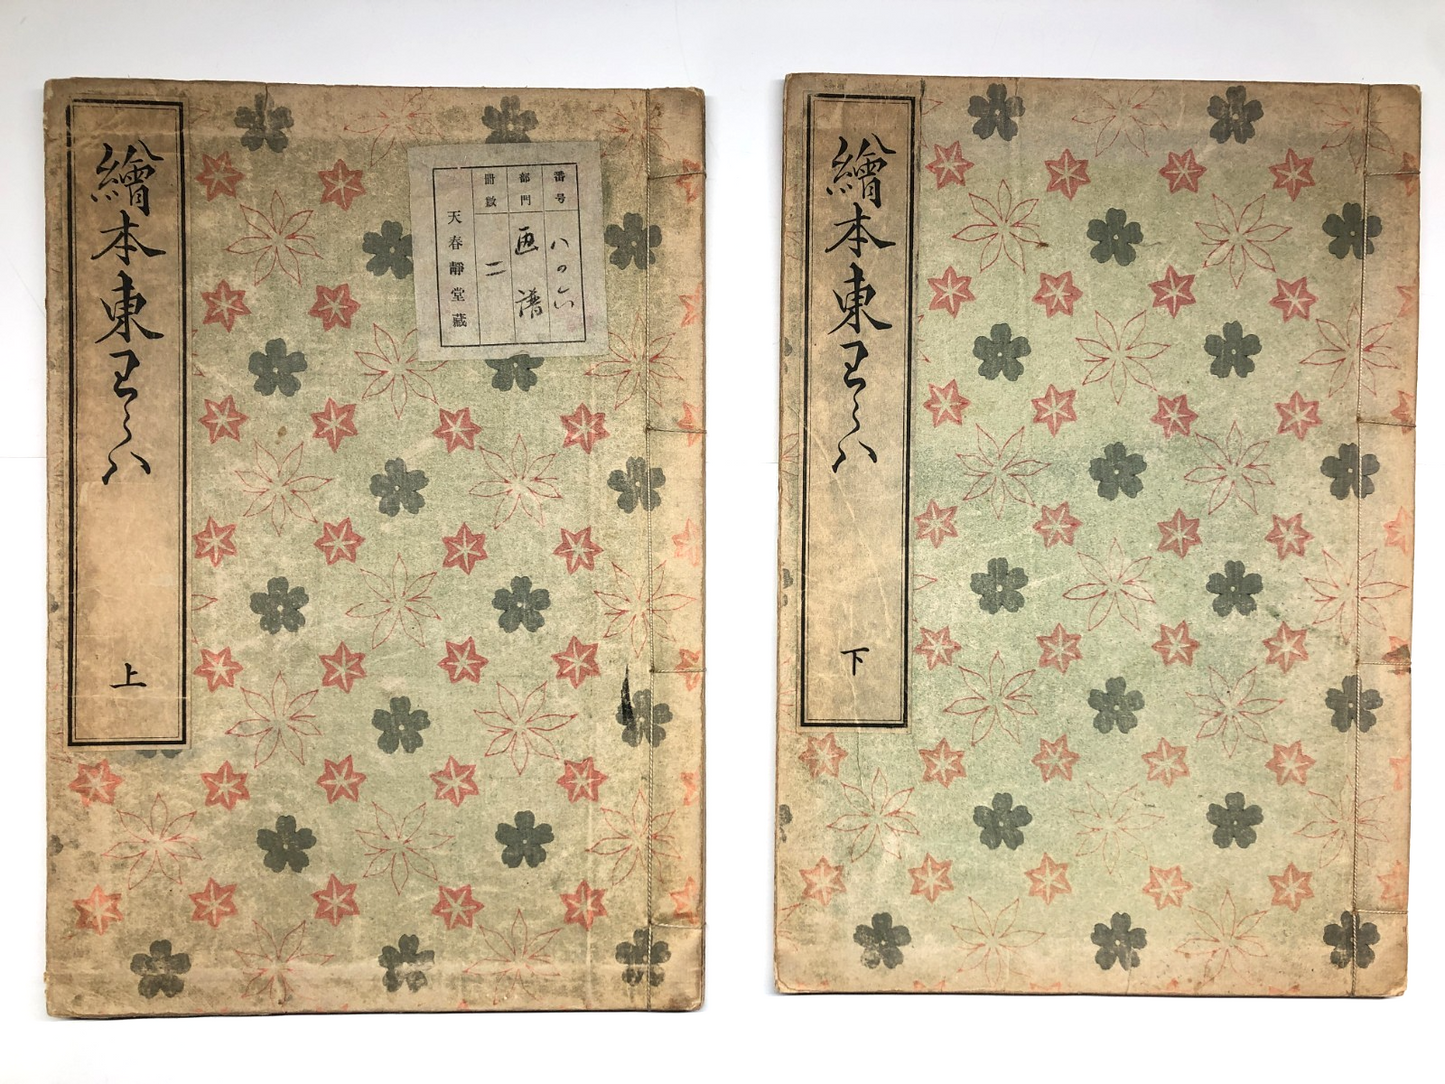 繪本東わらハ
上
番号 八の六
部門 画譜
冊数 二
天春靜堂藏
繪本東わらハ
下